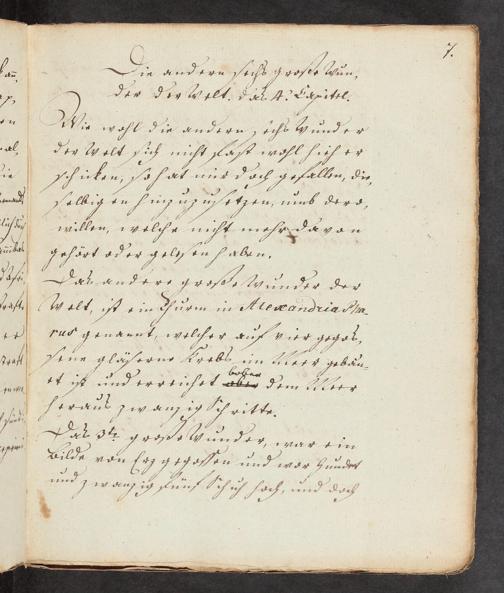 7.
Die andern sechs große Wun,
der der Welt. das 4te Capitel.
Wie wohl die andern, sechs Wunder
der Welt sich nicht fast wohl hieher
schicken, so hat mir doch gefallen, die,
selbigen hinzuzusetzen, umb derer,
willen, welche nicht mehr davon
gehört oder gelesen haben.
Das andere große Wunder der
Welt, ist ein Thurm in Alexandria Pha
rus genannt, welcher auf vier gegos,
sene gläserne Krebs im Meer gebau-
et ist und erreichet dem Meer
heraus zwanzig Schritte.
Das 3te große Wunder, war ein
Bilde von Erz gegossen und war hundert
und zwanzig fünf Schuh hoch, und doch